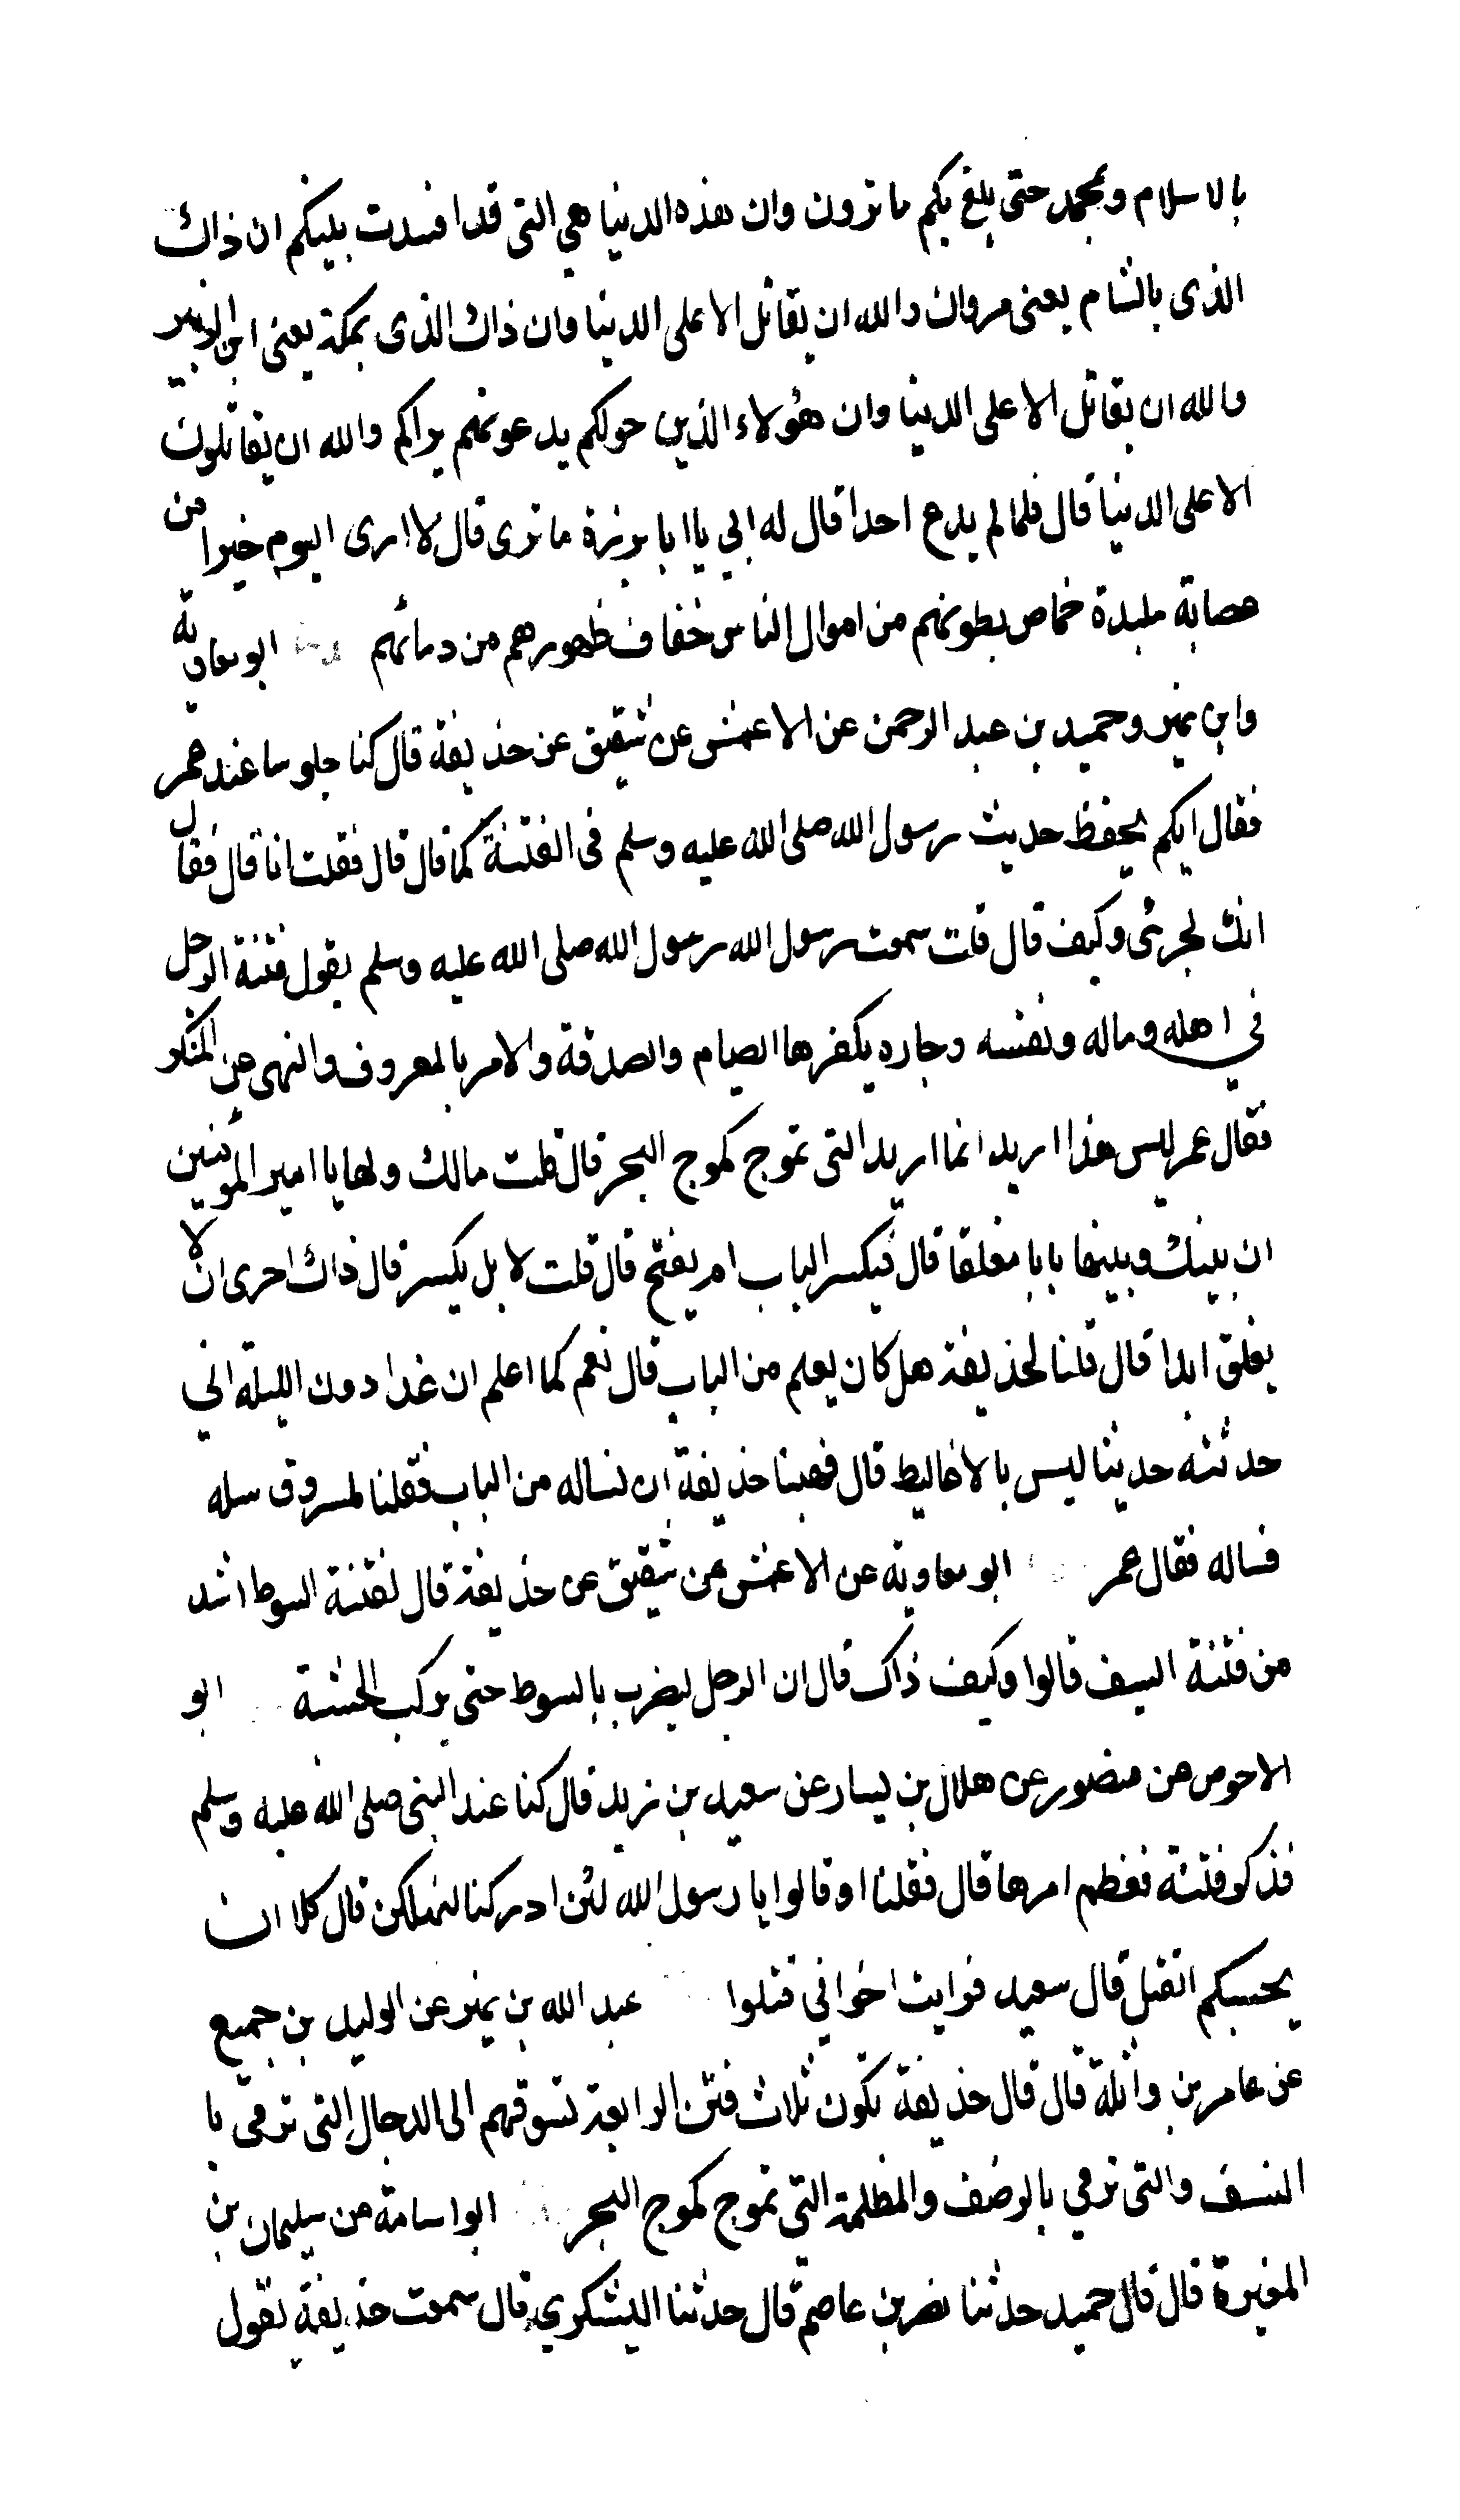 بالاسلام وبمحمد حتى بلغ بكم ما ترون وان هذه الدنيا هي التي قد افسدت بينكم ان ذاك
الذى بالشام يعنى مروان والله ان يقاتل الا على الدنيا وان ذاك الذى بمكة يعنى ابن الزبير
والله ان يقاتل الا على الدنيا وان هؤلاء الذين حولكم يدعونهم قراكم والله ان يقاتلون
الا على الدنيا قال فلما لم يدع احدا قال له ابي يا ابا برزة ما ترى قال لا ارى اليوم خيرا من
عصابة ملبدة خماص بطونهم من اموال الناس خفاف ظهورهم من دمائهم ابو معاوية
وابن نمير وحميد بن عبد الرحمن عن الاعمش عن شقيق عن حذيفة قال كنا جلوسا عند عمر
فقال ايكم يحفظ حديث رسول الله صلى الله عليه وسلم فى الفتنة كما قال قال فقلت انا قال فقال
انك لجرئ وكيف قال قلت سمعت رسول الله رسول الله صلى الله عليه وسلم يقول فتنة الرجل
في اهله وماله ونفسه وجاره يكفرها الصيام والصدقة والامر بالمعروف والنهى عن المنكر
فقال عمر ليس هذا اريد انما اريد التى تموج كموج البحر قال قلت مالك ولها يا امير المؤمنين
ان بينك وبينها بابا مغلقا قال فيكسر الباب ام يفتح قال قلت لا بل يكسر قال ذاك احرى ان لا
يغلق ابدا قال قلنا لحذيفة هل كان يعلم من الباب قال نعم كما اعلم ان غدا دون الليلة اني
حدثته حديثا ليس بالاغاليط قال فهبنا حذيفة ان نساله من الباب فقلنا لمسروق سله
فساله فقال عمر ابو معاوية عن الاعمش عن شقيق عن حذيفة قال لفتنة السوط اشد
من فتنة السيف قالوا وكيف ذاك قال ان الرجل ليضرب بالسوط حتى يركب الخشبة ابو
الاحوص عن منصور عن هلال بن يسار عن سعيد بن زيد قال كنا عند النبى صلى الله عليه وسلم
فذكر فتنة فعظم امرها قال فقلنا او قالوا يا رسول الله لئن ادركنا لنهلكن قال كلا ان
بحسبكم القتل قال سعيد فرايت اخواني قتلوا عبد الله بن نمير عن الوليد بن جميع
عن عامر بن واثلة قال قال حذيفة تكون ثلاث فتن الرابعة تسوقهم الى الدجال التى ترمي با
لنشف والتى ترمي بالرضف والمظلمة التى تموج كموج البحر ابو اسامة عن سليمان بن
المغيرة قال قال حميد حدثنا نصر بن عاصم قال حدثنا اليشكري قال سمعت حذيفة يقول